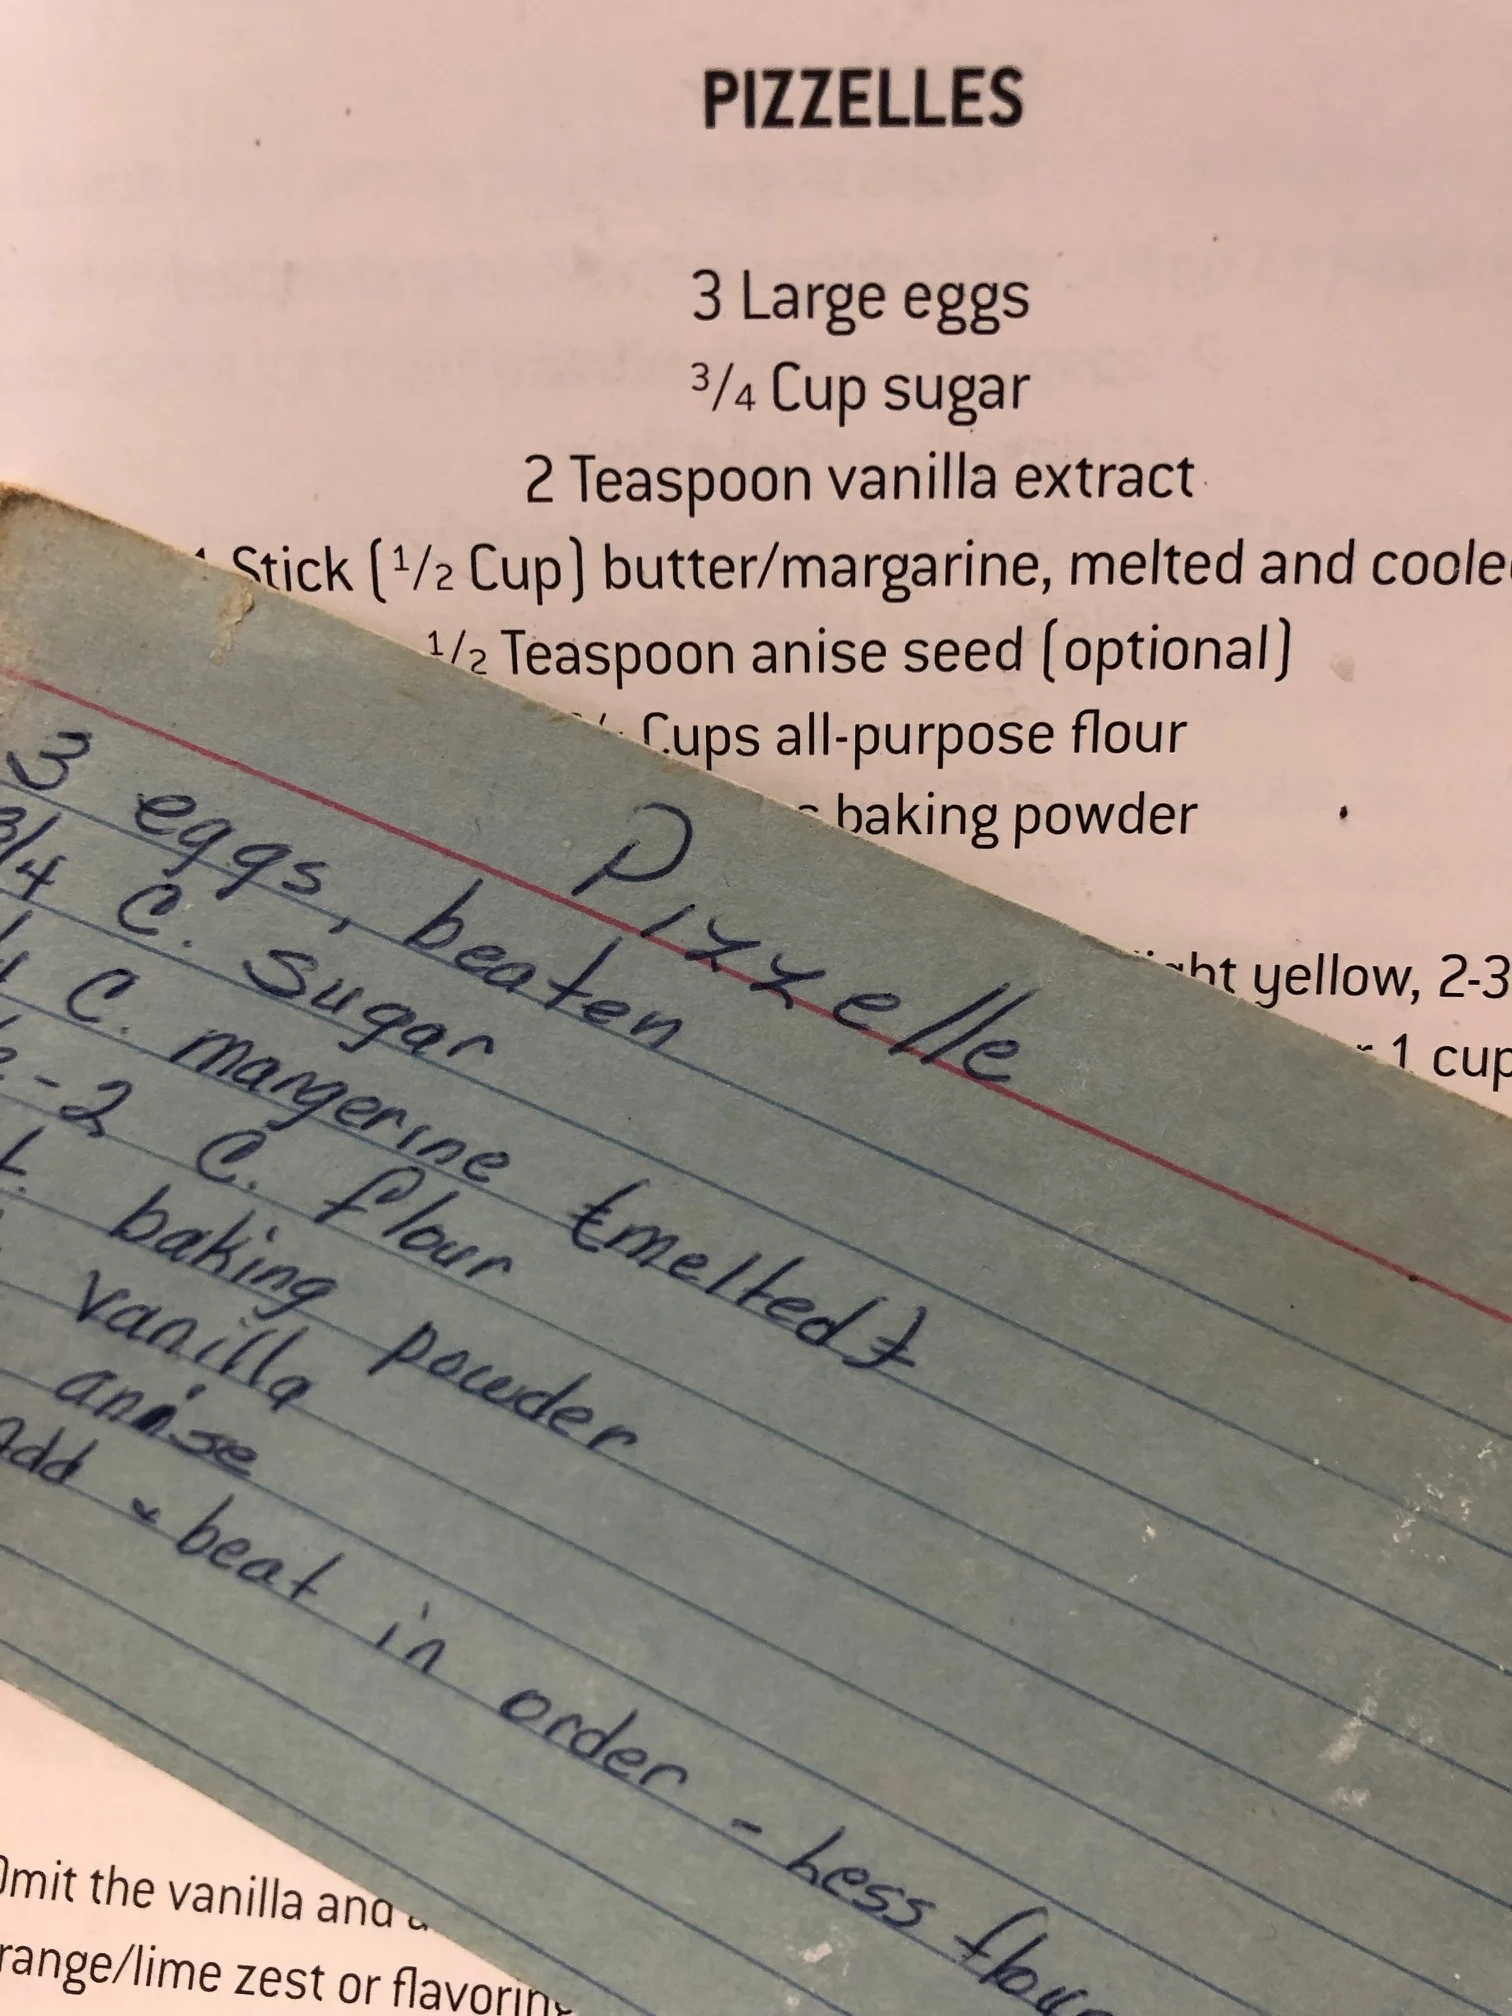 PIZZELLES
3 Large eggs
3/4 Cup sugar
2 Teaspoon vanilla extract
Stick (1/2 Cup) butter/margarine, melted and
1/2 Teaspoon anise seed (optional)
Cups all-purpose flour
baking powder
yellow, 2-3
1 cup
Pizzelle
3 eggs, beaten
3/4 C. Sugar
C. margerine (melted)
- 2 C. flour
baking powder
vanilla
anise
add & beat in order - Less
Omit the vanilla and
zest or